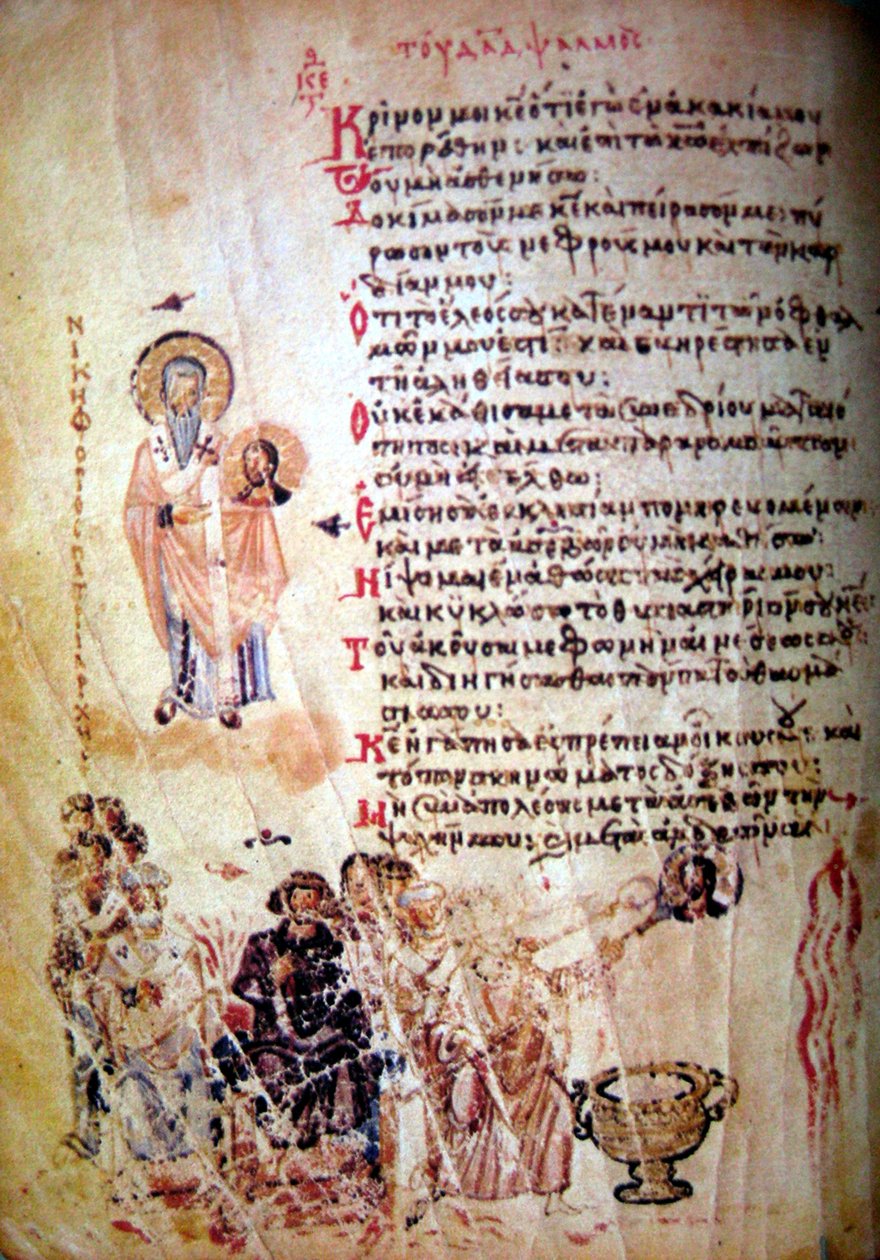 τοῦ δᾱδ, ψαλμός
κε
Κρῖνόν μοι κε̄ ὅτι ἐγὼ ἐν ἀκακία μου
ἐπορεύθην: καὶ ἐπὶ τῶ κω̄ ἐλπίζων
οὐ μὴ ἀσθενήσω:
Δοκίμασόν με κε̄ καὶ πείρασόν με: πύ
ρωσον τοὺς νεφρούς μου καὶ τὴν καρ
δίαν μου:
Ὅτι τὸ ἔλεός σου κατέναντι τῶν ὀφθαλ
μῶν μου ἐστί: καὶ εὐηρέστησα ἐν
τῆ ἀληθεία σου:
Οὐκ ἐκάθισα μετὰ συνεδρίου ματαιό
τητος: καὶ μετὰ παρανομούντων
οὐ μὴ εἰσέλθω:
Ἐμίσησα ἐκκλησίαν πονηρευομένων
καὶ μετὰ ἀσεβῶν οὐ μὴ καθίσω:
Νίψομαι ἐν ἀθώοις τὰς χεῖράς μου:
καὶ κυκλώσω τὸ θυσιαστήριόν σου κε̄
Τοῦ ἀκοῦσαί με φωνὴν αἰνέσεως σου:
καὶ διηγήσασθαι πάντα τὰ θαυμά
σιά σου:
Κε̄ ἠγάπησα εὐπρέπειαν οἴκου σου: καὶ
τόπον σκηνώματος δόξης σου:
Μὴ συναπολέσης μετὰ ἀσεβῶν τὴν
ψυχήν μου:
ΝΙΚΗΦΟΡΟC